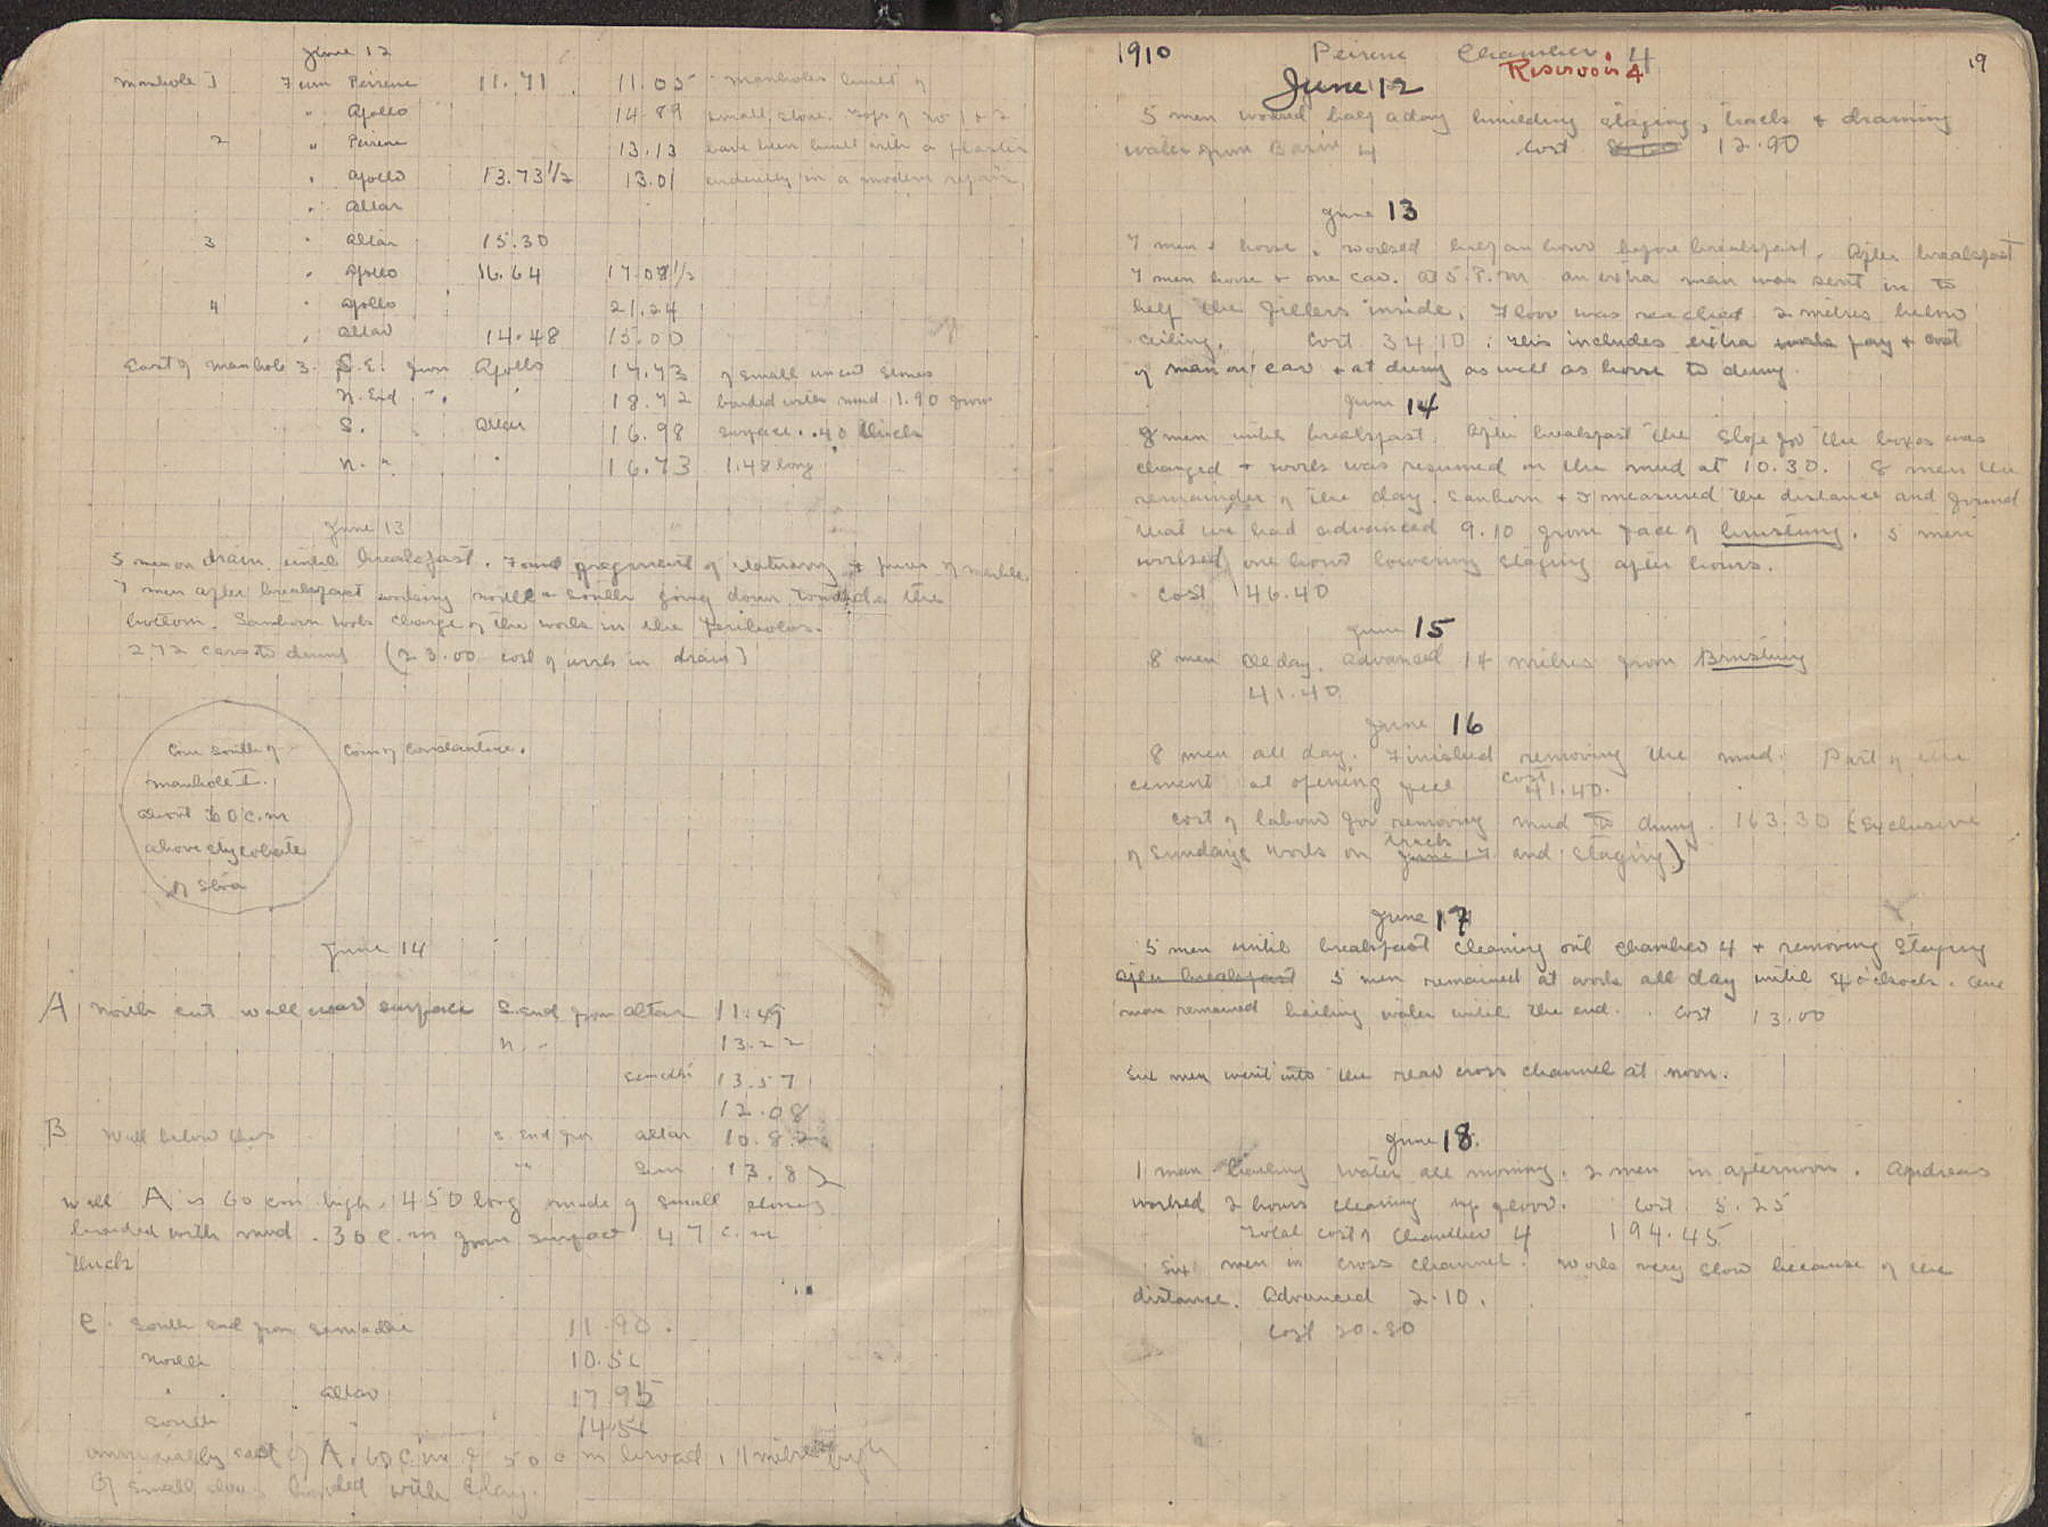 June 12
Manhole 1 From Peirene 11.71 11.05 Manholes built of
" Apollo 14.89 small stone. Tops of No 1 & 2
2 " Peirene 13.13 have been built with a plaster
" Apollo 13.73 1/2 13.01 evidently in a modern repair
" Altar
3 " Altar 15.30
" Apollo 16.64 17.07 1/2
4 " Apollo 21.24
" Altar 14.48 15.00
East of Manhole 3. S.E. from Apollo 17.73 of small uncut stones
N. End " " 18.72 bonded with mud 1.90 from
S. " Altar 16.98 surface. .40 thick
N. " " 16.73 1.48 long
June 13
5 men on drain until breakfast. Found fragment of statuary & piece of marble.
7 men after breakfast working north & south going down towards the
bottom. Sanborn took charge of the work in the Peribolos.
272 cars to dump (23.00 cost of work in drain)
Coin south of
manhole I.
about 60 c.m
above stylobate
of Stoa
Coin of Constantine.
June 14
A North cut wall near surface S. end from altar 11.49
N. " 13.22
Semadhi 13.57
12.08
B Wall below this S. end from altar 10.82
" Sem 13.82
Wall A is 60 cm high. 450 long made of small stones
bonded with mud. 30 c.m from surface 47 c.m
thick
C. South end from Semadhi 11.90.
North 10.56
" " altar 17.95
South " 14.56
immediately east of A. 60 c.m 50 c m broad, 1 metre high
Of small stones bonded with clay.
1910 Peirene Chamber. 4 19
Reservoir 4
June 12
5 men worked half a day building staging, track & draining
water from Basin 4 Cost 12.90
June 13
7 men & horse. worked half an hour before breakfast. After breakfast
7 men horse & one car. At 5. P.M an extra man was sent in to
help the fillers inside. Floor was reached 2 metres below
ceiling. Cost 34.10. This includes extra work pay & cost
of man on car & at dump as well as horse to dump.
June 14
8 men until breakfast. After breakfast the slope for the boxes was
changed & work was resumed on the mud at 10.30. 8 men the
remainder of the day. Sanborn & I measured the distance and found
that we had advanced 9.10 from face of Brustung. 5 men
worked one hour lowering staging after hours.
Cost 46.40
June 15
8 men all day. Advanced 14 metres from Brustung
41.40
June 16
8 men all day. Finished removing the mud. Part of the
cement at opening fell Cost 41.40.
Cost of labour for removing mud to dump. 163.30 (exclusive
of Sunday's work on track June 17 and staging)
June 17
5 men until breakfast cleaning out chamber 4 & removing staging
After breakfast 5 men remained at work all day until 4 o'clock. One
man remained bailing water until the end. Cost 13.00
Six men went into the rear cross channel at noon.
June 18.
1 man bailing water all morning. 2 men in afternoon. Andreas
worked 2 hours cleaning up floor. Cost 5.25
Total cost of Chamber 4 194.45
Six men in cross channel. Work very slow because of the
distance. Advanced 2.10.
Cost 20.80